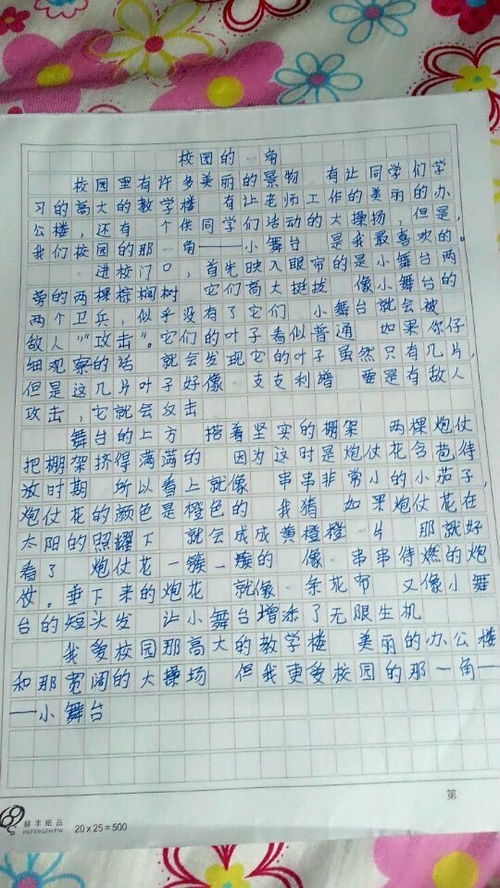 校园的一角
校园里有许多美丽的景物 有让同学们学
习的高大的教学楼 有让老师工作的美丽的办
公楼，还有一个供同学们活动的大操场，但是，
我们校园的那一角——小舞台 是我最喜欢的。
一进校门口，首先映入眼帘的是小舞台两
旁的两棵棕榈树 它们高大挺拔 像小舞台的
两个卫兵，似乎没有了它们 小舞台就会被
敌人"攻击"。它们的叶子看似普通 如果你仔
细观察的话 就会发现它的叶子虽然只有几片，
但是这几片叶子好像一支支利增 要是有敌人
攻击，它就会反击
舞台的上方 搭着坚实的棚架 两棵炮仗
把棚架挤得满满的 因为这时是炮仗花含苞待
放时期 所以看上就像一串串非常小的小茄子，
炮仗花的颜色是橙色的 我猜 如果炮仗花在
太阳的照耀下 就会成成黄橙橙一片 那就好
看了 炮仗花一簇一簇的 像一串串待燃的炮
仗。垂下来的炮花 就像一条花布 又像小舞
台的短头发 让小舞台增添了无限生机
我爱校园那高大的教学楼 美丽的办公楼
和那宽阔的大操场 但我更爱校园的那一角—
—小舞台
第
赫丰纸品
HEFENGZHIPIN
20×25=500